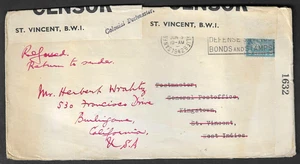 CENSOR
CENSOR
ST. VINCENT, B.W.I.
ST. VINCENT, B.W.I.
Colonial Postmaster.
DEFENSE
BONDS AND STAMPS
Refused.
Return to sender.
1632
Mr. Herbert Wrahtz
530 Francisco Drive
Burlingame,
California
USA
Postmaster,
General Postoffice,
Kingstown,
St. Vincent,
West Indies.